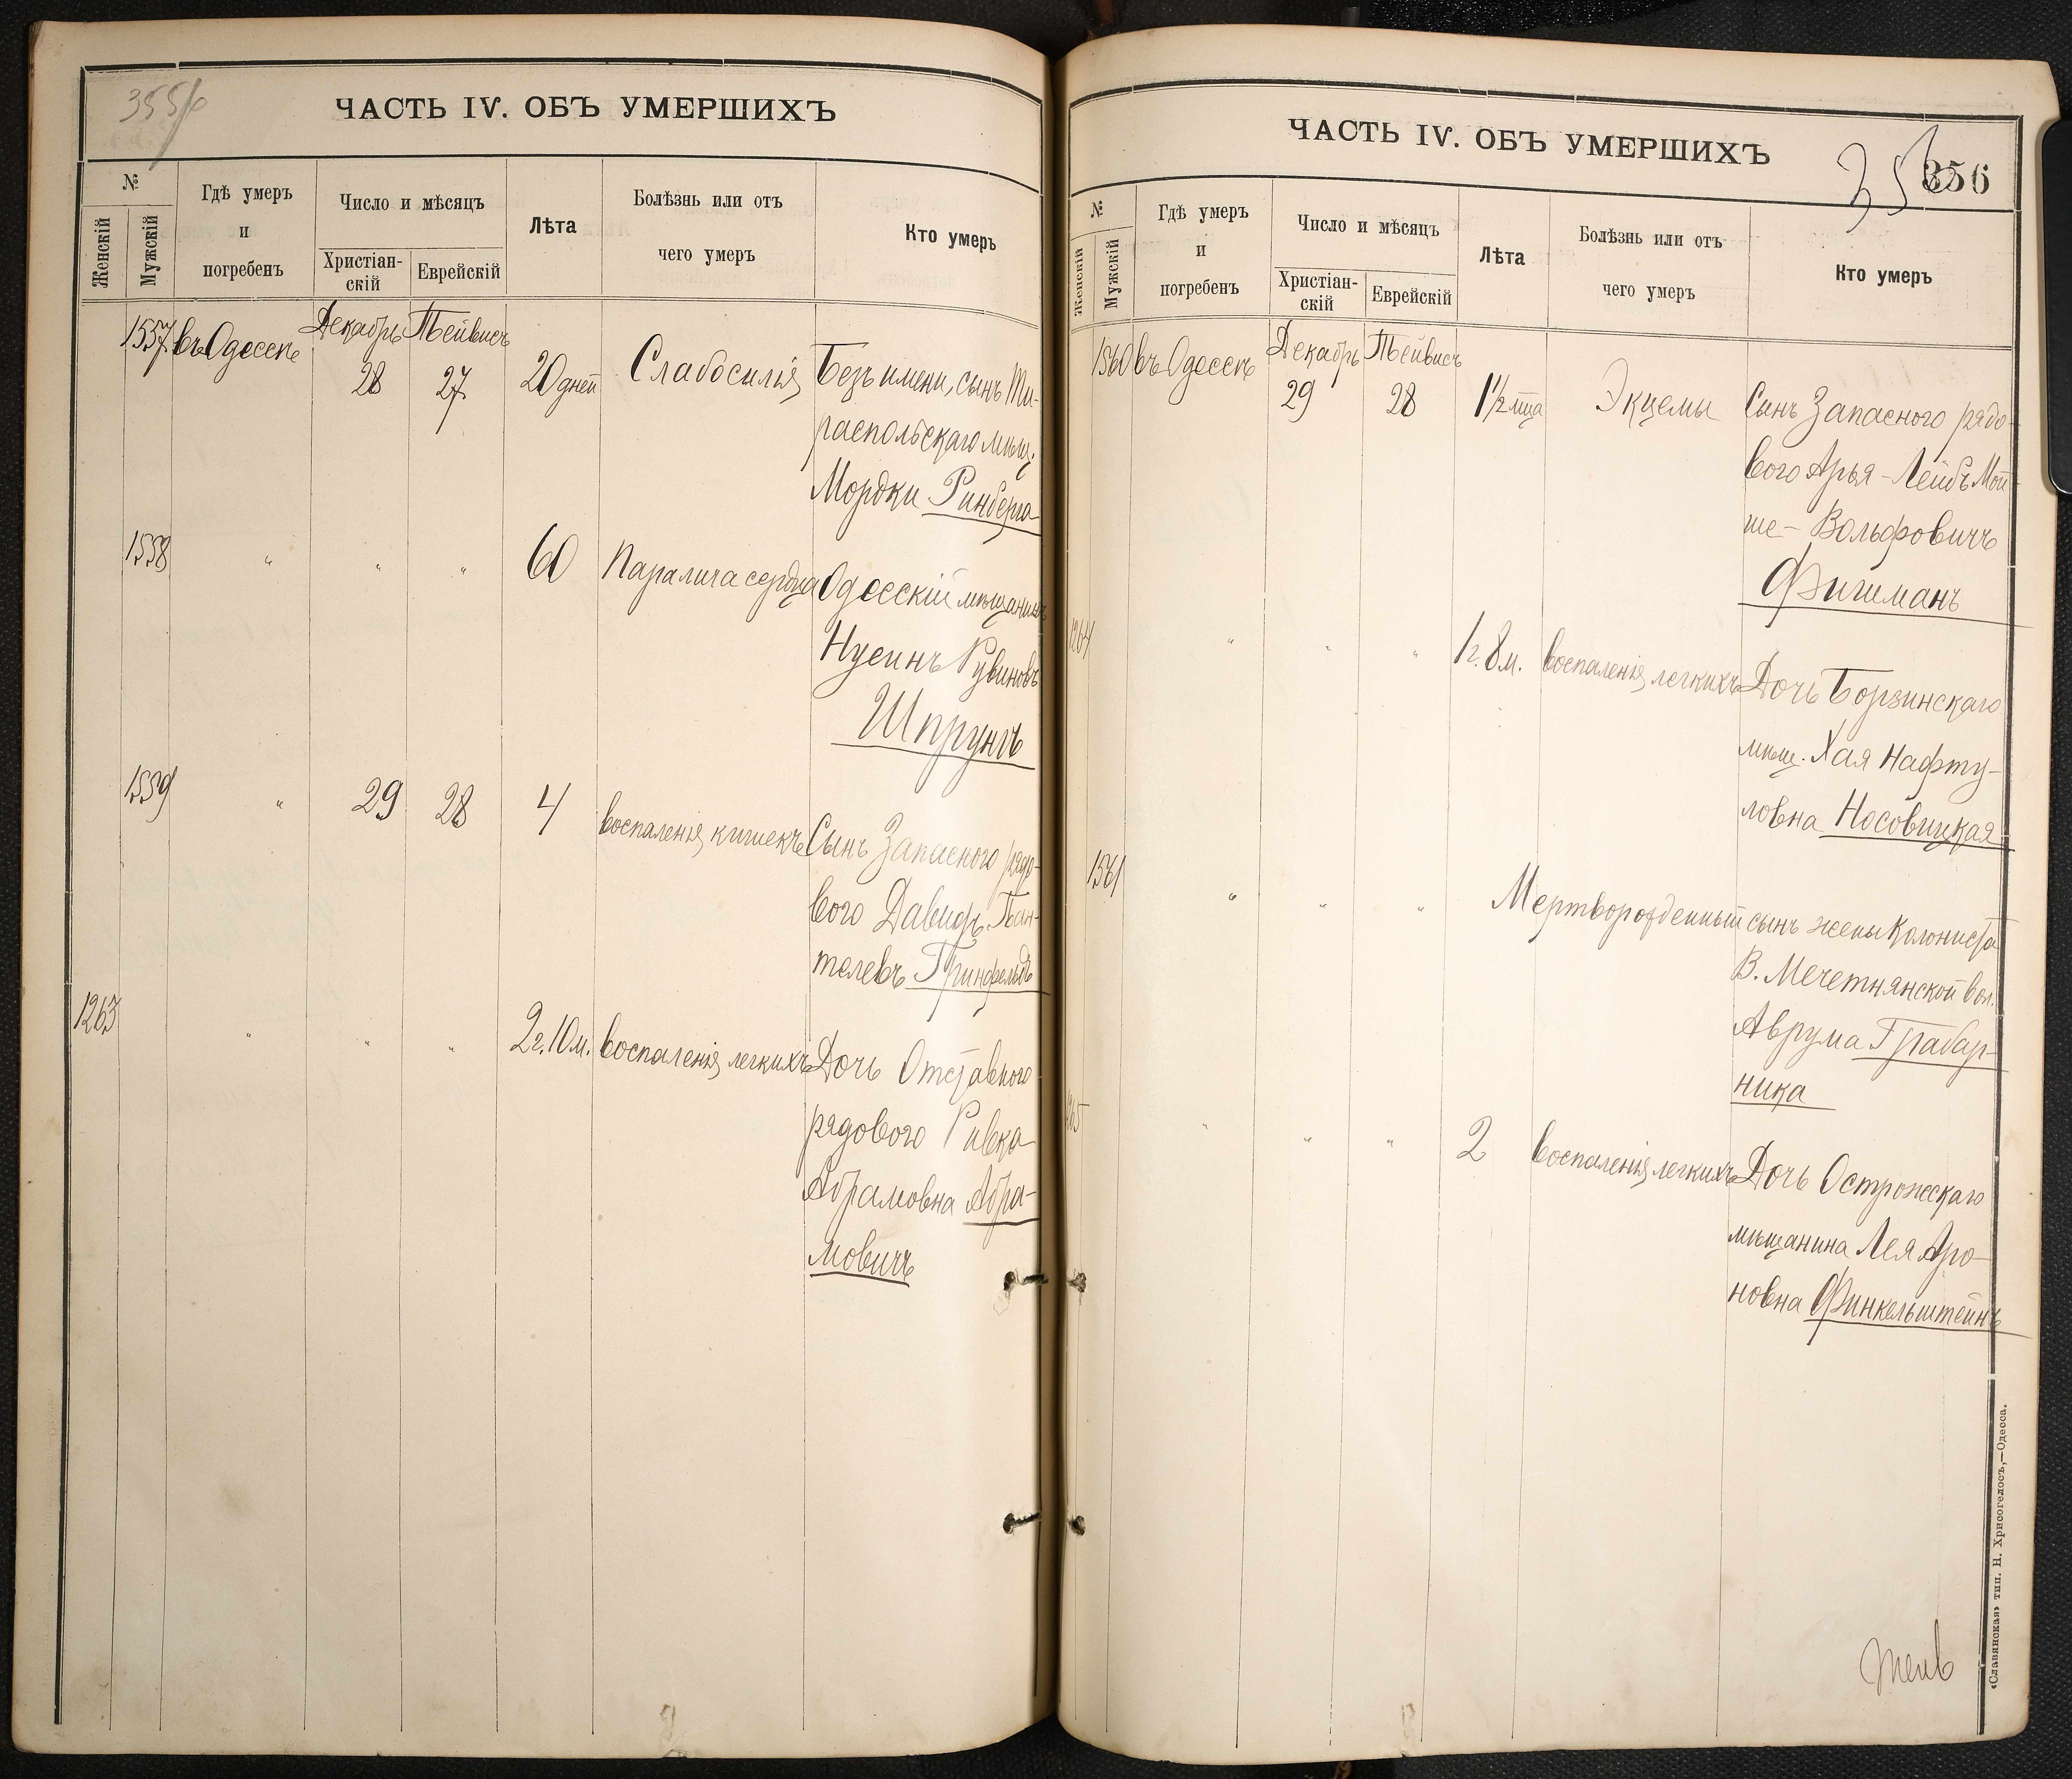 355/6
ЧАСТЬ IV. ОБЪ УМЕРШИХЪ
№
Женскій
Мужскій
Гдѣ умеръ
и
погребенъ
Число и мѣсяцъ
Христіан-
скій
Еврейскій
Лѣта
Болѣзнь или отъ
чего умеръ
Кто умеръ
1557 въ Одессѣ Декабрь Тейвисъ
28 27 20 дней Слабосилія Безъ имени, сынъ Ти-
распольскаго мѣщ.
Мордки Ринберга
1558 " " " 60 Паралича сердца Одесскій мѣщанинъ
Нусинъ Рувиновъ
Шпрунгъ
1559 " 29 28 4 воспаленія кишекъ Сынъ Запасного рядо-
вого Давидъ
телевъ Гринфельдъ
1263 " " " 2 г. 10 м. воспаленія легкихъ Дочь Отставного
рядового Ривка
Абрамовна Абра-
мовичъ
ЧАСТЬ IV. ОБЪ УМЕРШИХЪ
356
№
Женскій
Мужскій
Гдѣ умеръ
и
погребенъ
Число и мѣсяцъ
Христіан-
скій
Еврейскій
Лѣта
Болѣзнь или отъ
чего умеръ
Кто умеръ
1560 въ Одессѣ Декабрь Тейвисъ
29 28 1½ мца Экцемы Сынъ Запасного рядо-
вого Арья-Лейбъ Мой-
ше-Вольфовичъ
Фишманъ
1264 " " " 1 г. 8 м. воспаленія легкихъ Дочь Борзинскаго
мѣщ. Хая Нафту-
ловна Носовицкая
1561 " " " Мертворожденный сынъ жены колониста
В. Мечетнянской вол.
Аврума Грабар-
ника
1265 " " " 2 воспаленія легкихъ Дочь Острожскаго
мѣщанина Лея Аро-
новна Финкельштейнъ
«Славянская» тип. Н. Хрисогелосъ,—Одесса.